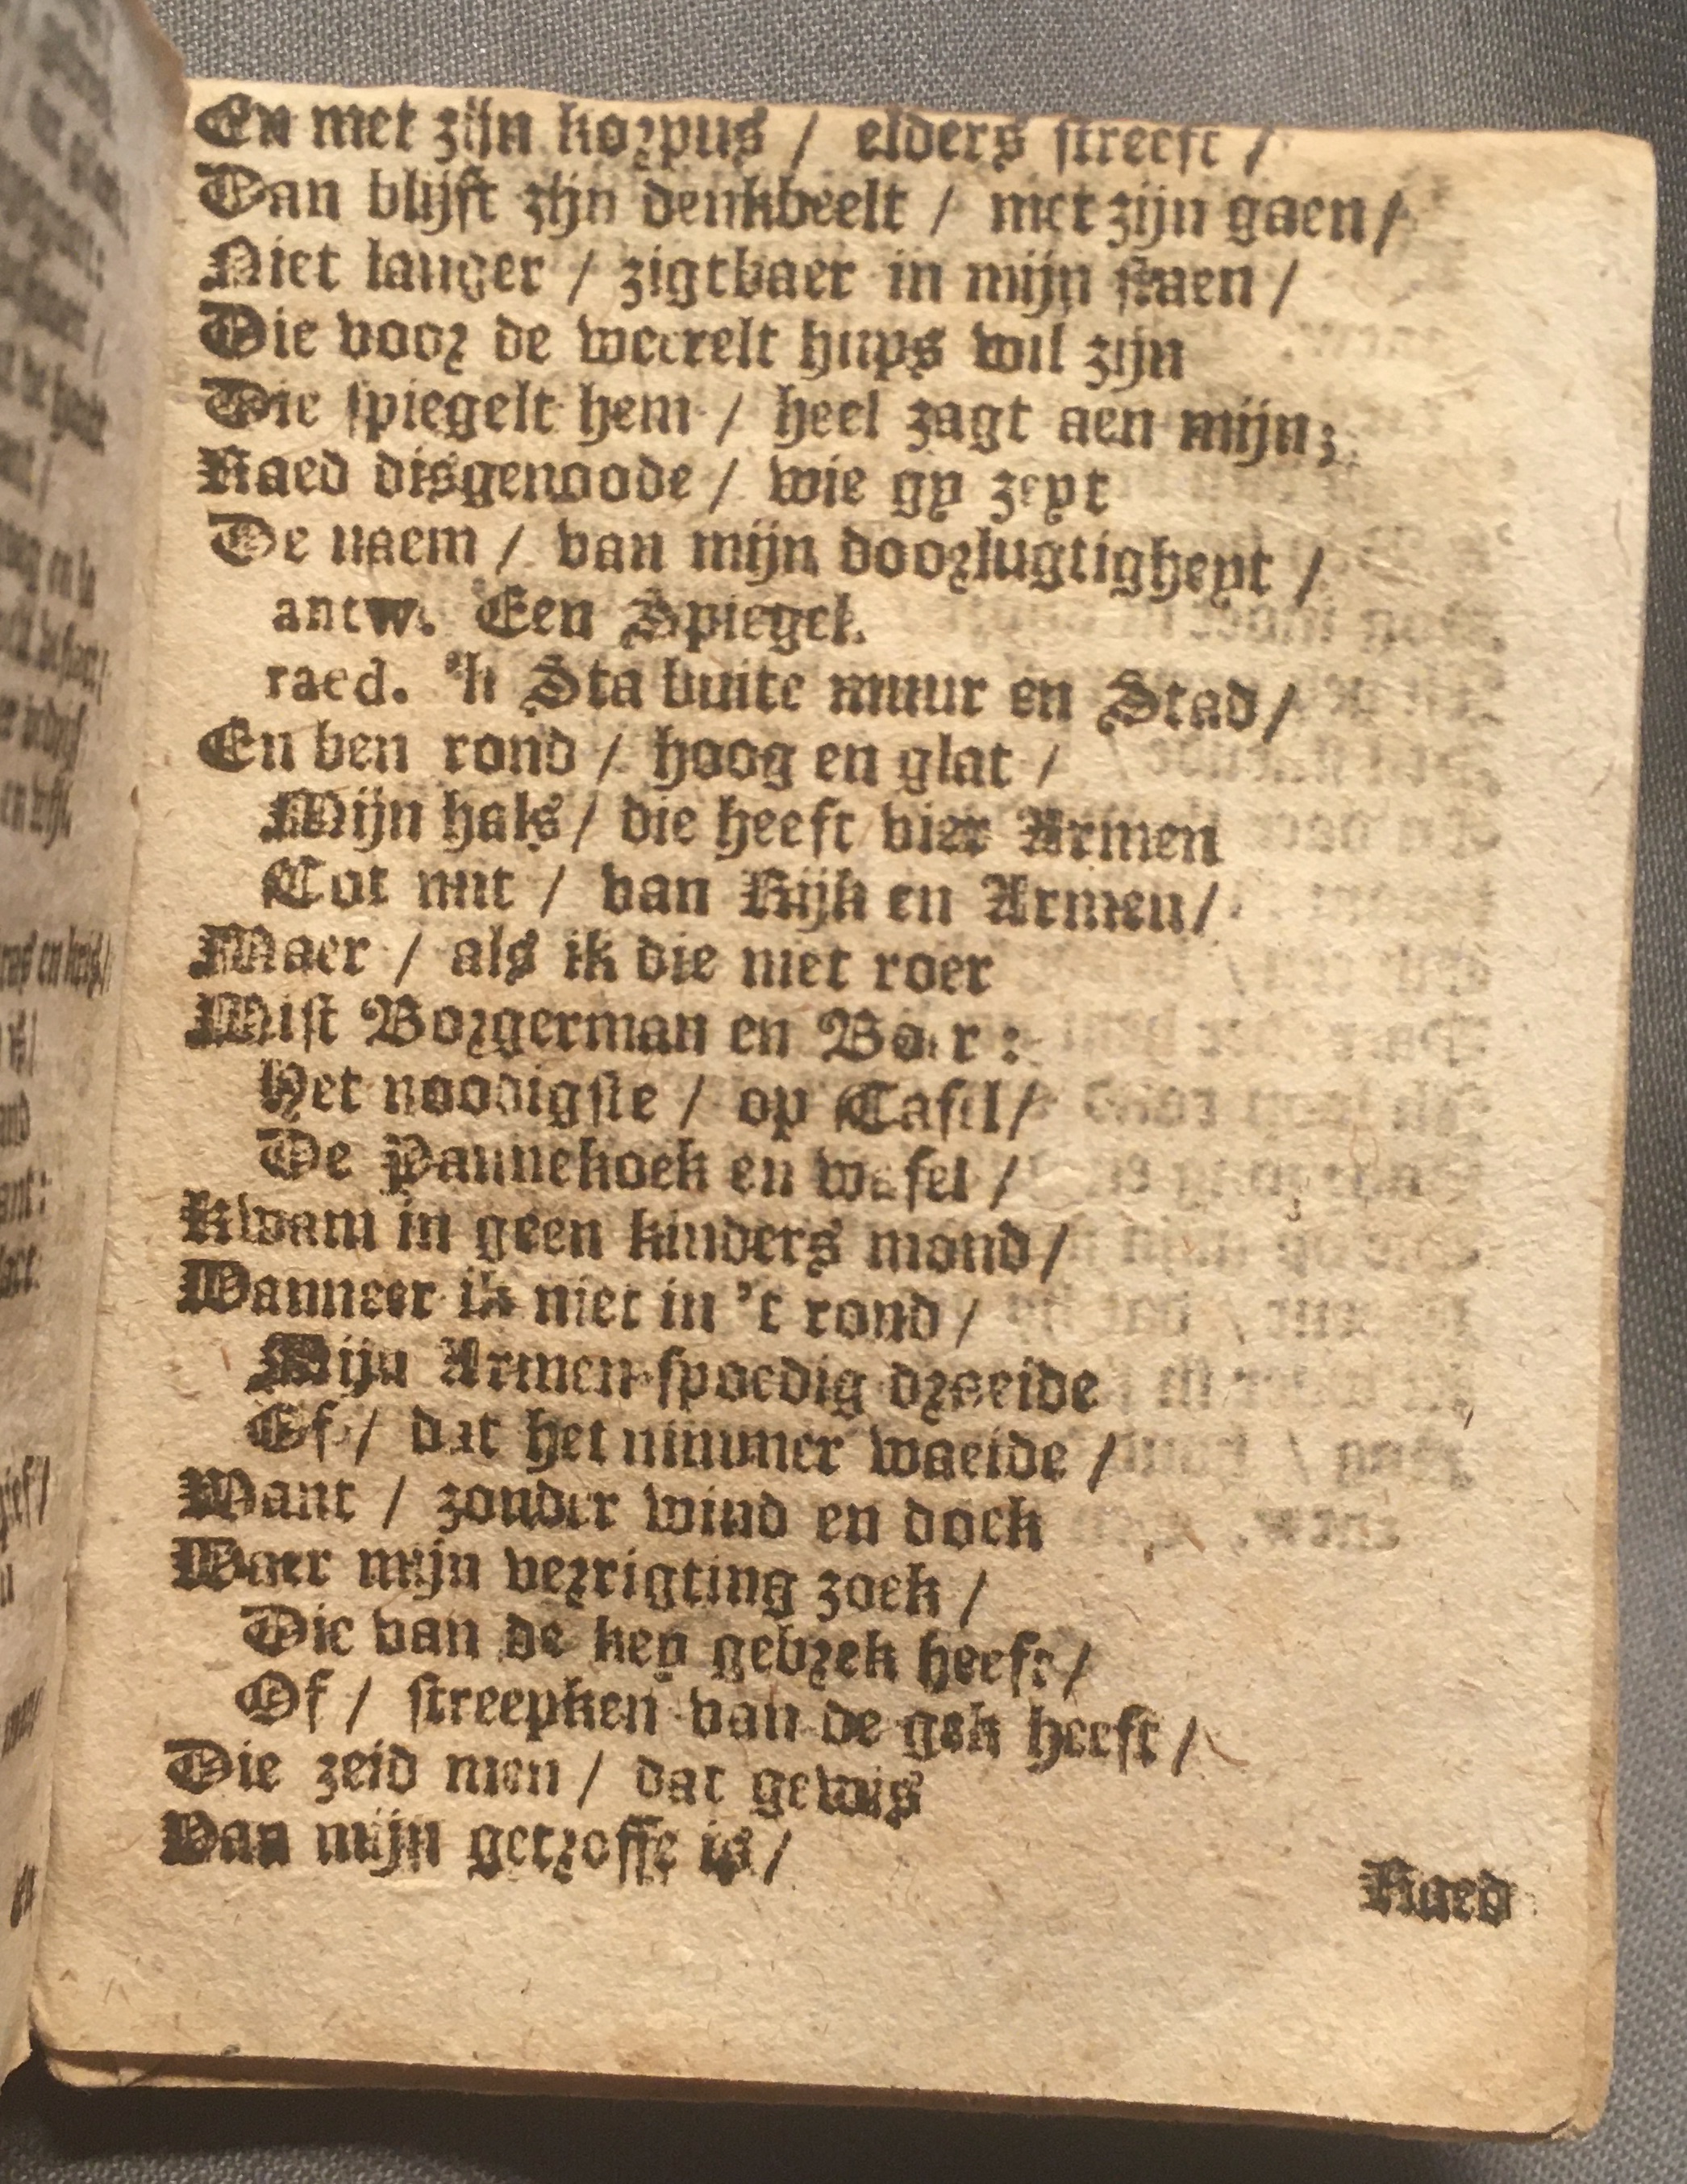 En met zijn korpus / elders streeft /
Dan blijft zijn denkbeelt / met zijn gaen /
Niet langer / zigtbaer in mijn staen /
Die voor de weerelt hups wil zijn
Die spiegelt hem / heel zagt aen mijn;
Raed disgenoode / wie gy zeyt
De naem / van mijn doorlugtigheyt /
antw. Een Spiegel.
raed. 'k Sta buite muur en Stad /
En ben rond / hoog en glat /
Mijn hals / die heeft vier Armen
Tot nut / van Rijk en Armen /
Maer / als ik die niet roer
Mist Borgerman en Boer :
Het noodigste / op Tafel /
De Pannekoek en wafel /
Kwam in geen kinders mond /
Wanneer ik niet in 't rond /
Mijn Armen spoedig draeide
Of / dat het nimmer waeide /
Want / zonder wind en doek
Waer mijn verrigting zoek /
Die van de key gebrek heeft /
Of / streepken van de gek heeft /
Die zeid men / dat gewis
Van mijn getroffe is /
Raed